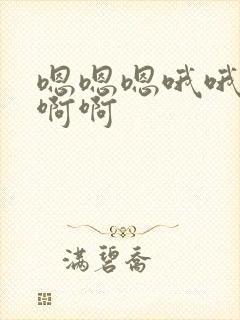 嗯嗯嗯哦哦
啊啊
满碧乔